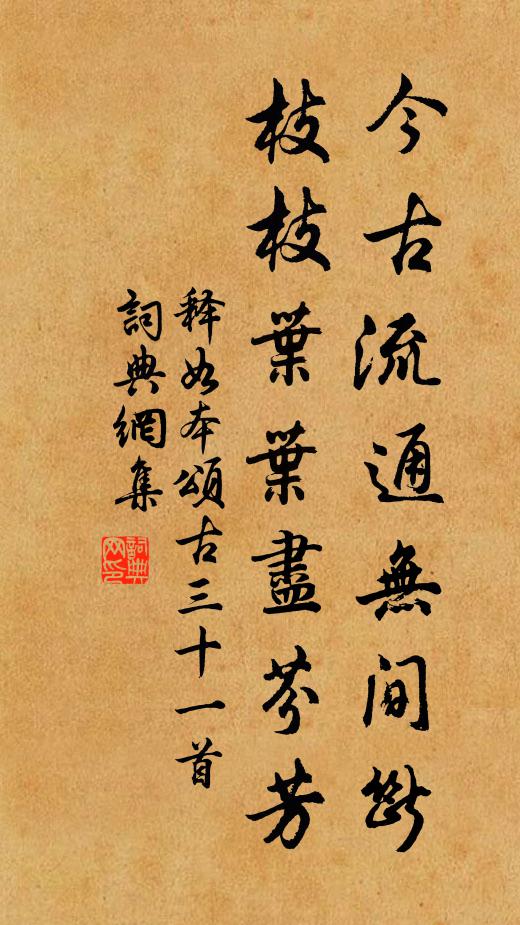 今古流通無间斷
枝枝葉葉盡芬芳
释如本頌古三十一首
詞典網集
詞典网印